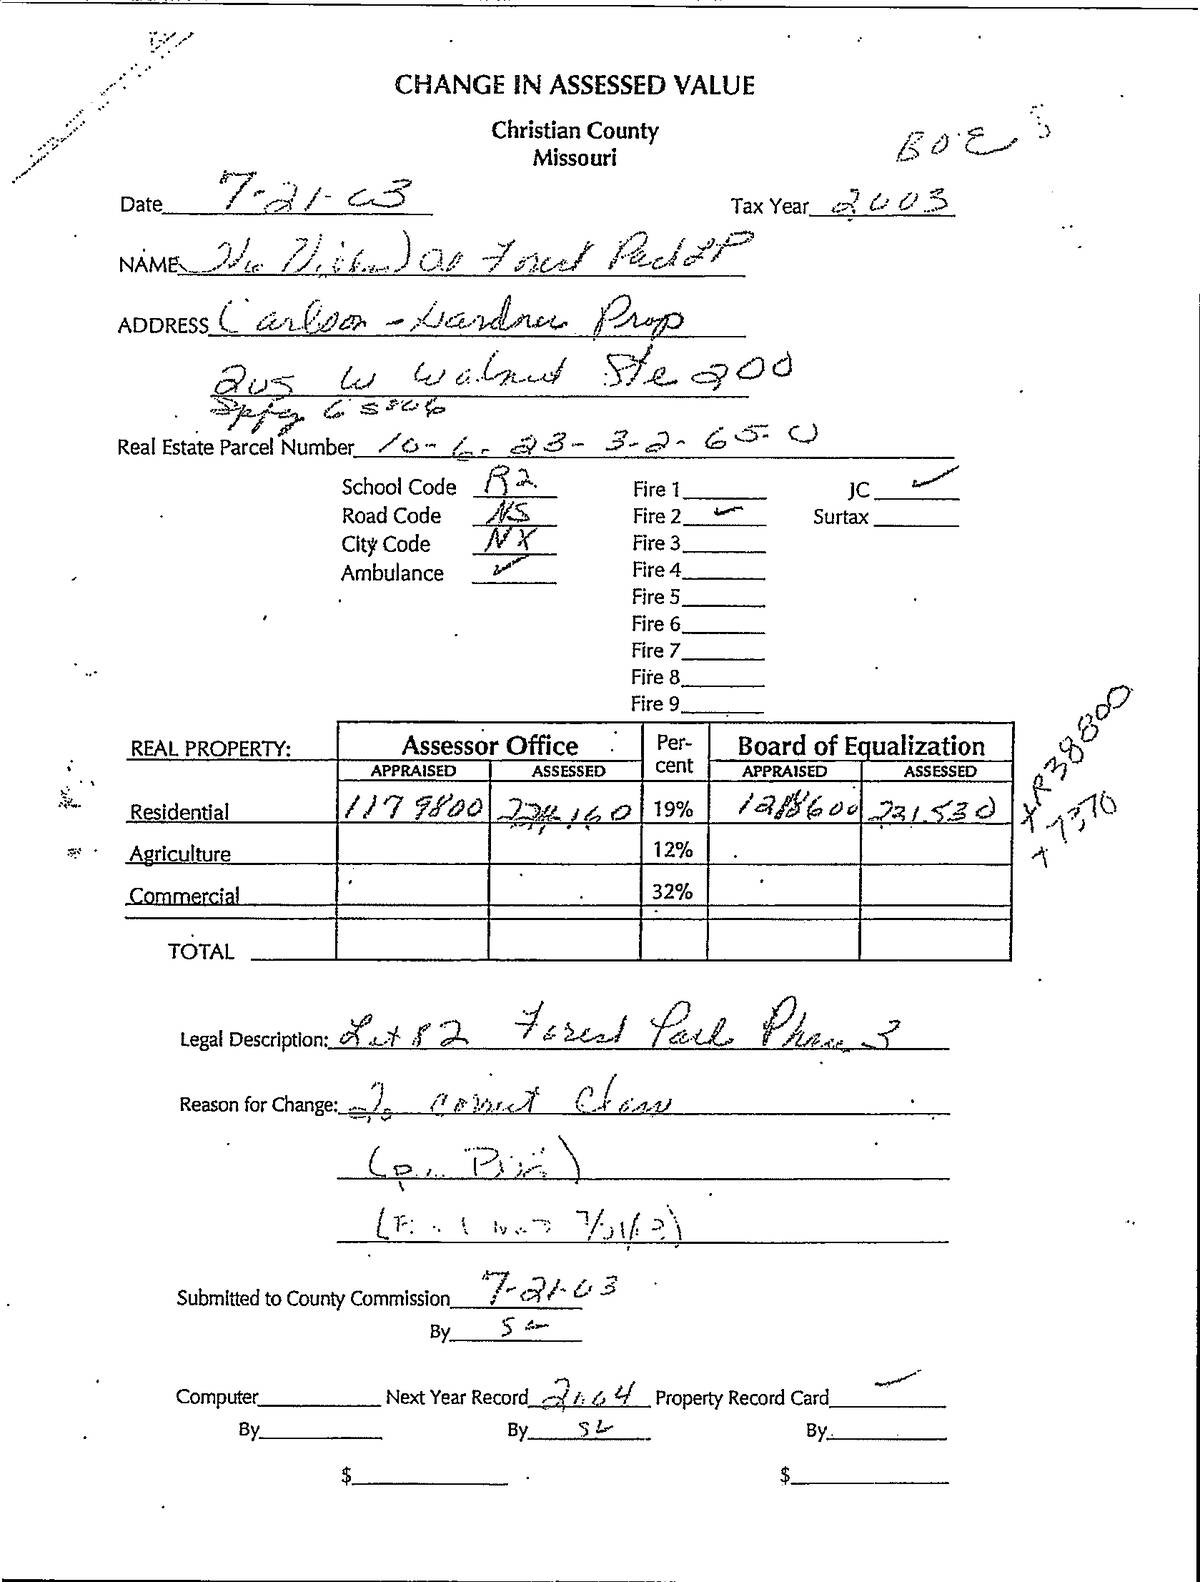 CHANGE IN ASSESSED VALUE
Christian County
Missouri
BOE
Date 7-21-03 Tax Year 2003
NAME at Forest Park LP
ADDRESS Carlson - Gardner Prop
205 W Walnut Ste 200
Spfg 65806
Real Estate Parcel Number 10-6-23-3-2-65-0
School Code R2 Fire 1 JC ✓
Road Code NS Fire 2 ✓ Surtax
City Code NX Fire 3
Ambulance ✓ Fire 4
Fire 5
Fire 6
Fire 7
Fire 8
Fire 9
REAL PROPERTY: Assessor Office Per-cent Board of Equalization
APPRAISED ASSESSED APPRAISED ASSESSED
+R38800
Residential 1179800 224,160 19% 1218600 231,530
+7370
Agriculture 12%
Commercial 32%
TOTAL
Legal Description: Lot 82 Forest Park Phase 3
Reason for Change: To correct Class
Submitted to County Commission 7-21-03
By SL
Computer Next Year Record 2004 Property Record Card ✓
By By SL By
$ $